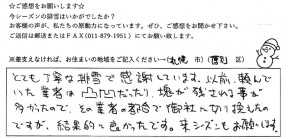 ☆ご感想をお願いします☆
今シーズンの排雪はいかがでしたか？
お客様の声が、私たちの原動力になっています。ぜひ、ご感想をお聞かせ下さい。
ご返信は郵送またはFAX(011-879-1951)にてお願い致します。
※差支えなければ、お住まいの地域をご記入ください→(札幌 市)( 区)
とても丁寧な排雪で感謝しています。以前、頼んで
いた業者は凸凹だったり、塊が残される事が
多かったので、その業者の都合で御社に切り換えたの
ですが、結果的に良かったです。来シーズンもお願いします。